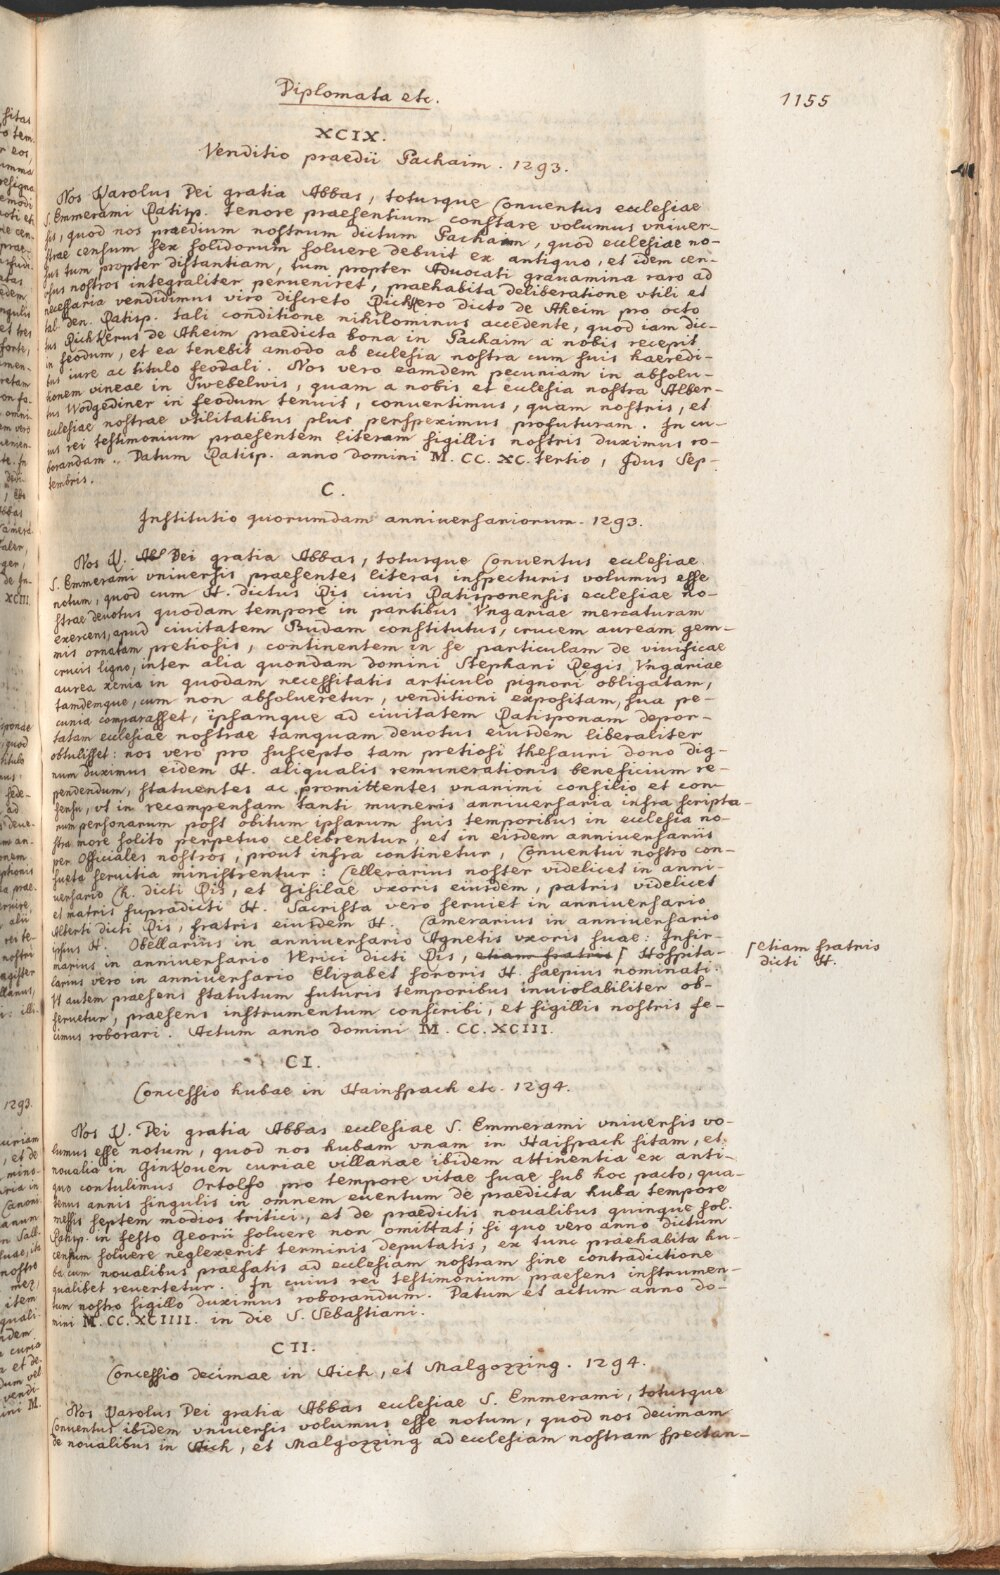 Diplomata etc.
1155
XCIX.
Venditio praedii Pachaim. 1293.
Nos Karolus Dei gratia Abbas, totusque Conventus ecclesiae
S. Emmerami Ratisp. tenore praesentium constare volumus vniver-
sis, quod nos praedium nostrum dictum Pachaim, quod ecclesiae no-
strae censum sex solidorum soluere debuit ex antiquo, et idem cen-
sus tum propter distantiam, tum propter Aduocati grauamina raro ad
vsus nostros integraliter perueniret, praehabita deliberatione vtili et
necessaria vendidimus viro discreto Rickero dicto de Aheim pro octo
tal. den. Ratisp. tali conditione nihilominus accedente, quod iam dic-
tus Rickkerus de Aheim praedicta bona in Pachaim a nobis recepit
in feodum, et ea tenebit amodo ab ecclesia nostra cum suis haeredi-
bus iure ac titulo feodali. Nos vero eamdem pecuniam in absolu-
tionem vineae in Twebelwis, quam a nobis et ecclesia nostra Alber-
tus Wodgediner in feodum tenuit, conuertimus, quam nostris, et
ecclesiae nostrae vtilitatibus plus perspeximus profuturam. In cu-
ius rei testimonium praesentem literam sigillis nostris duximus ro-
borandam. Datum Ratisp. anno domini M. CC. XC. tertio, Idus Sep-
tembris.
C.
Institutio quorumdam anniuersariorum. 1293.
Nos K. Dei gratia Abbas, totusque Conuentus ecclesiae
S. Emmerami vniuersis praesentes literas inspecturis volumus esse
notum, quod cum H. dictus Dis ciuis Ratisponensis ecclesiae no-
strae deuotus quodam tempore in partibus Vngariae mercaturam
exercens, apud ciuitatem Budam constitutus, crucem auream gem-
mis ornatam pretiosis, continentem in se particulam de viuificae
crucis ligno, inter alia quondam domini Stephani Regis Vngariae
aurea xenia in quodam necessitatis articulo pignori obligatam,
tamdemque, cum non absolueretur, venditioni expositam, sua pe-
cunia comparasset, ipsamque ad ciuitatem Ratisponam depor-
tatam ecclesiae nostrae tamquam deuotus eiusdem liberaliter
obtulisset: nos vero pro suscepto tam pretiosi thesauri dono dig-
num duximus eidem H. aliqualis remunerationis beneficium re-
pendendum, statuentes ac promittentes vnanimi consilio et con-
sensu, vt in recompensam tanti muneris anniuersaria infra scripta-
rum personarum post obitum ipsarum suis temporibus in ecclesia no-
stra more solito perpetuo celebrentur, et in eisdem anniuersariis
per Officiales nostros, prout infra continetur, Conuentui nostro con-
sueta seruitia ministrentur: Cellerarius noster videlicet in anni-
uersario Ch. dicti Dis, et Gisilae vxoris eiusdem, patris videlicet
et matris supradicti H. Sacrista vero seruiet in anniuersario
Alberti dicti Dis, fratris eiusdem H. Camerarius in anniuersario
ipsius H. Obellarius in anniuersario Agnetis vxoris suae: Infir-
marius in anniuersario Verici dicti Dis, etiam fratris Hospita-
larius vero in anniuersario Elizabet sororis H. saepius nominati.
Vt autem praesens statutum futuris temporibus inuiolabiliter ob-
seruetur, praesens instrumentum conscribi, et sigillis nostris fe-
cimus roborari. Actum anno domini M. CC. XCIII.
etiam fratris
dicti H.
CI.
Concessio hubae in Hainspach etc. 1294.
Nos K. Dei gratia Abbas ecclesiae S. Emmerami vniuersis vo-
lumus esse notum, quod nos hubam vnam in Haispach sitam, et
noualia in Ginkouen curiae villanae ibidem attinentia ex anti-
quo contulimus Ortolfo pro tempore vitae suae sub hoc pacto, qua-
tenus annis singulis in omnem euentum de praedicta huba tempore
messis septem modios tritici, et de praedictis noualibus quinque sol.
Ratisp. in festo Georii soluere non omittat; si quo vero anno dictum
censum soluere neglexerit terminis deputatis, ex tunc praehabita hu-
ba cum noualibus praefatis ad ecclesiam nostram sine contradictione
qualibet reuertetur. In cuius rei testimonium praesens instrumen-
tum nostro sigillo duximus roborandum. Datum et actum anno do-
mini M. CC. XCIIII. in die S. Sebastiani.
CII.
Concessio decimae in Aich, et Malgozzing. 1294.
Nos Karolus Dei gratia Abbas ecclesiae S. Emmerami, totusque
Conuentus ibidem vniuersis volumus esse notum, quod nos decimam
de noualibus in Aich, et Malgozzing ad ecclesiam nostram spectan-